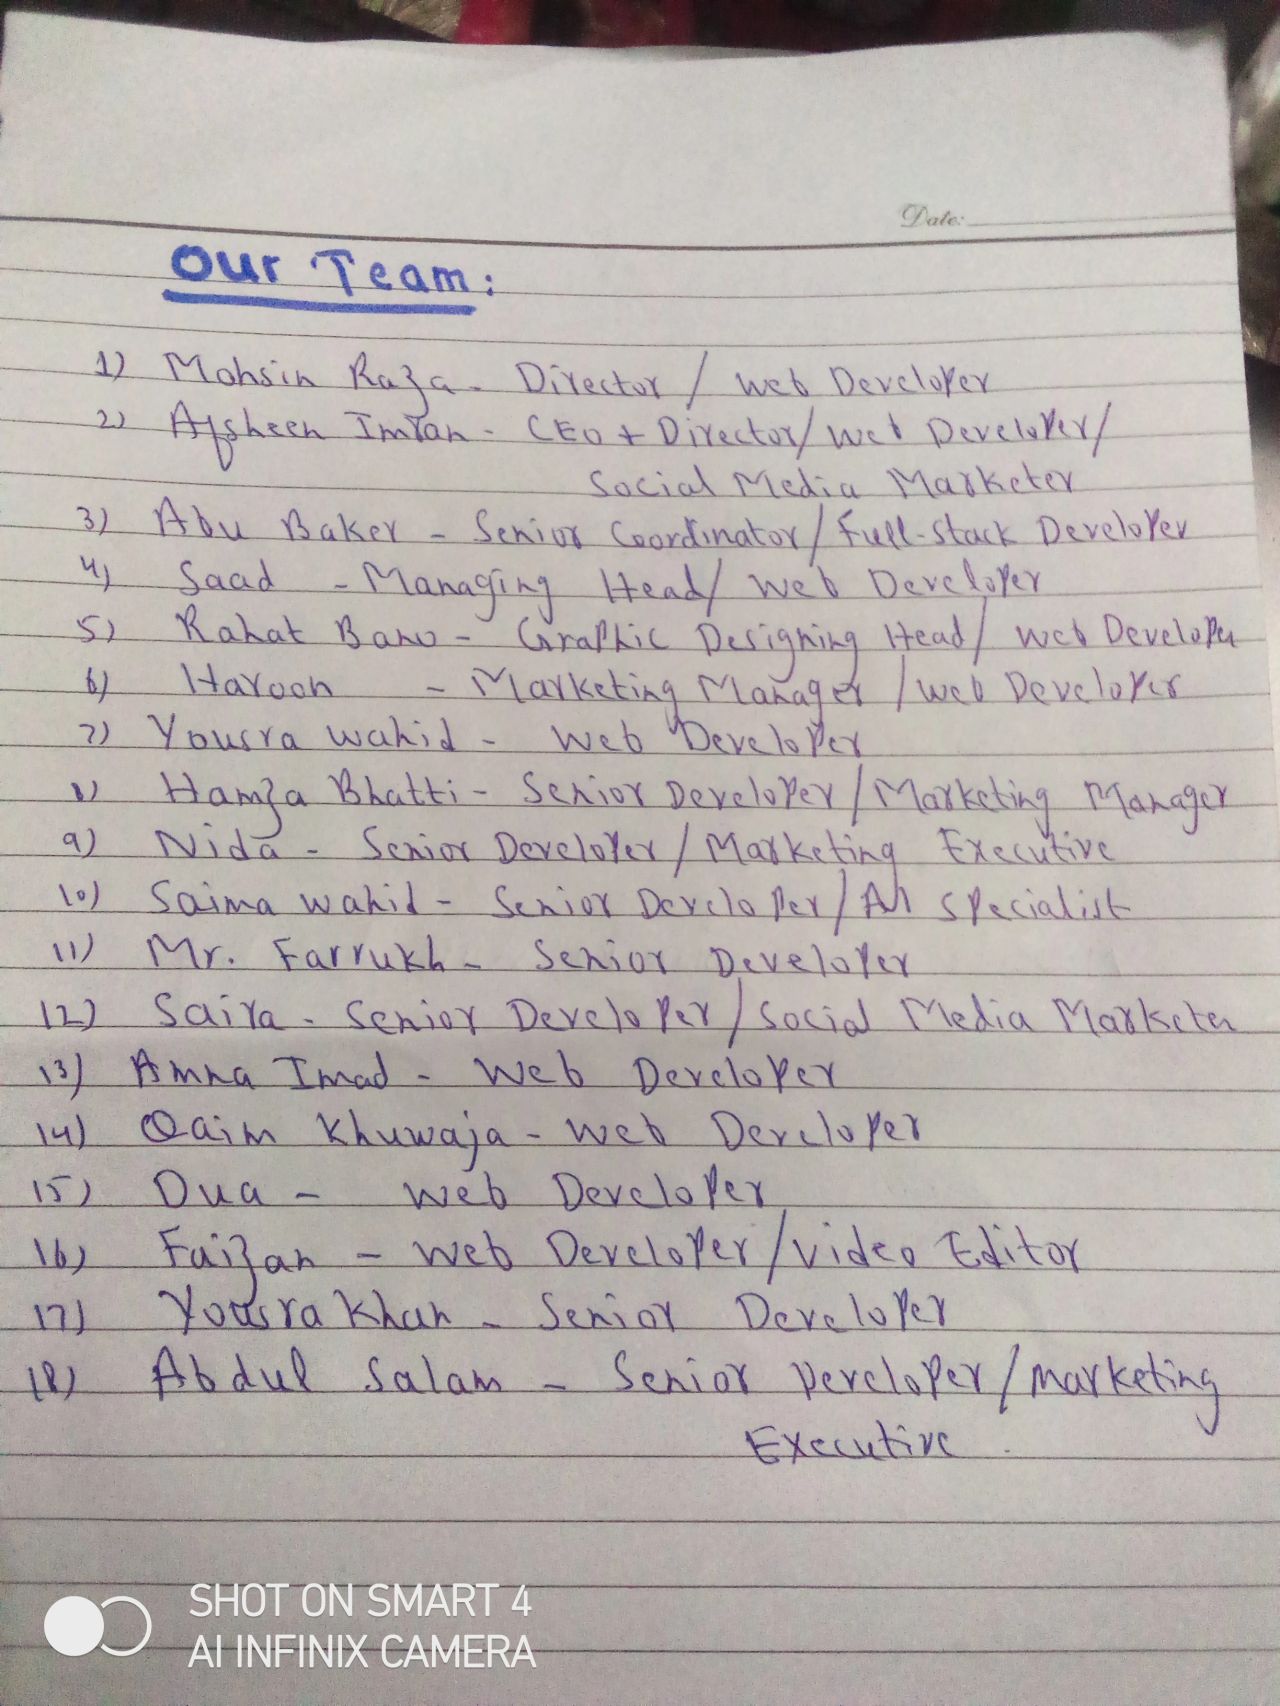 Date:
Our Team:
1) Mohsin Raza - Director / Web Developer
2) Afsheen Imran - CEO + Director/ Web Developer/
Social Media Marketer
3) Abu Baker - Senior Coordinator/ Full-Stack Developer
4) Saad - Managing Head/ Web Developer
5) Rahat Bano - Graphic Designing Head/ Web Developer
6) Haroon - Marketing Manager / Web Developer
7) Yousra Wahid - Web Developer
8) Hamza Bhatti - Senior Developer / Marketing Manager
9) Nida - Senior Developer / Marketing Executive
10) Saima Wahid - Senior Developer / AI Specialist
11) Mr. Farrukh - Senior Developer
12) Saira - Senior Developer / Social Media Marketer
13) Amna Imad - Web Developer
14) Qaim Khuwaja - Web Developer
15) Dua - Web Developer
16) Faizan - Web Developer / Video Editor
17) Yousra Khan - Senior Developer
18) Abdul Salam - Senior Developer / Marketing
Executive.
SHOT ON SMART 4
AI INFINIX CAMERA